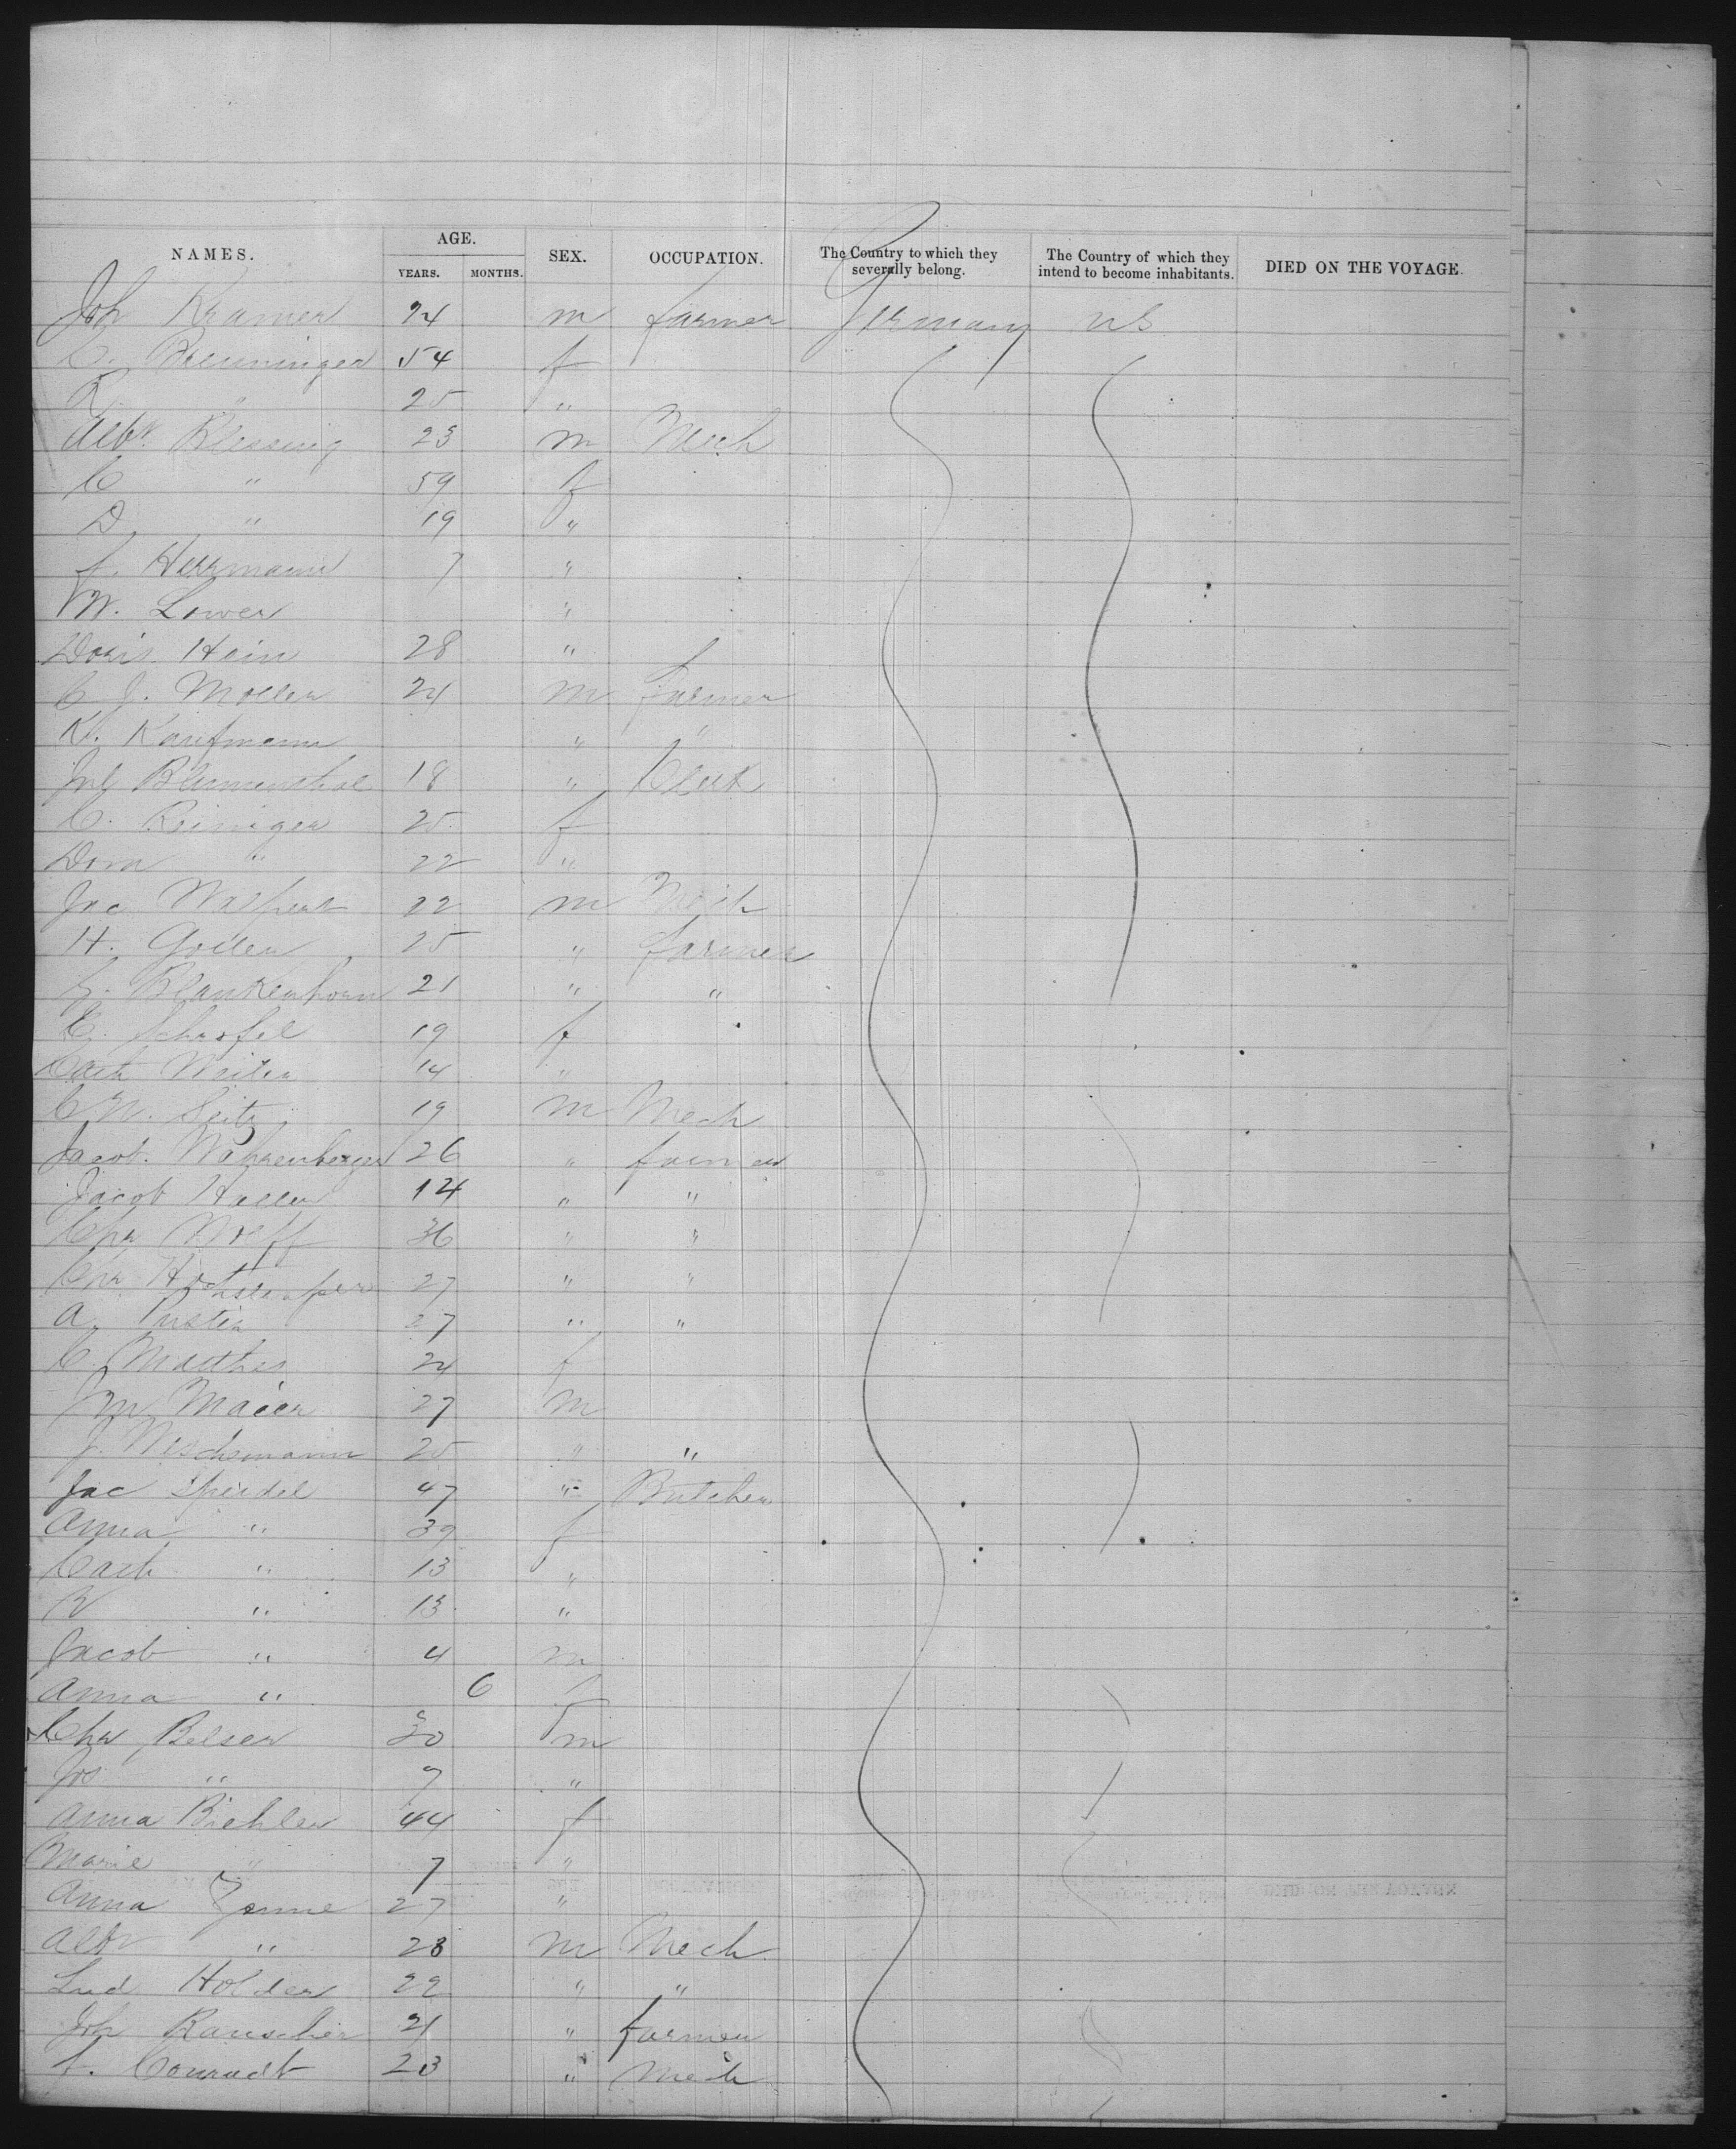 NAMES. AGE. SEX. OCCUPATION. The Country to which they severally belong. The Country of which they intend to become inhabitants. DIED ON THE VOYAGE.
YEARS. MONTHS.
Joh Kramer 24 m farmer Germany US
C. Breuninger 54 f
R. " 25 "
Albt. Blessing 23 m Mech
C " 59 f
D. " 19 "
f. Herrmann 7 "
W. Lower "
Doris Hein 28 "
C J. Moller 24 m Farmer
K. Kaufmann " "
Jul Blumenthal 18 " Clerk
C. Reiniger 25 f
Dora " 22 "
Jac Walpert 22 m Mech
H. Goller 25 " farmer
G. Blankenhorn 21 " "
C. 19 f
Cath Weiler 14 "
C W. Seitz 19 m Mech
Jacob. Wahrenberger 26 " farmer
Jacob Haller 14 " "
Chr Wolff 36 " "
Chr 27 " "
A. Puster 27 " "
C. Matthes 24 f
Maier 27 m
J. 25 " "
Jac Speidel 47 " Butcher
Anna " 39 f
Cath " 13 "
R " 13 "
Jacob " 4 m
Anna " 6 f
Chr Belser 30 m
Jos " 7 "
Anna Biehler 44 f
Marie " 7 "
Anna 27 "
Albt " 23 m Mech
Lud Holder 22 " "
Joh Rauscher 21 " farmer
f. Conradt 23 " Mech